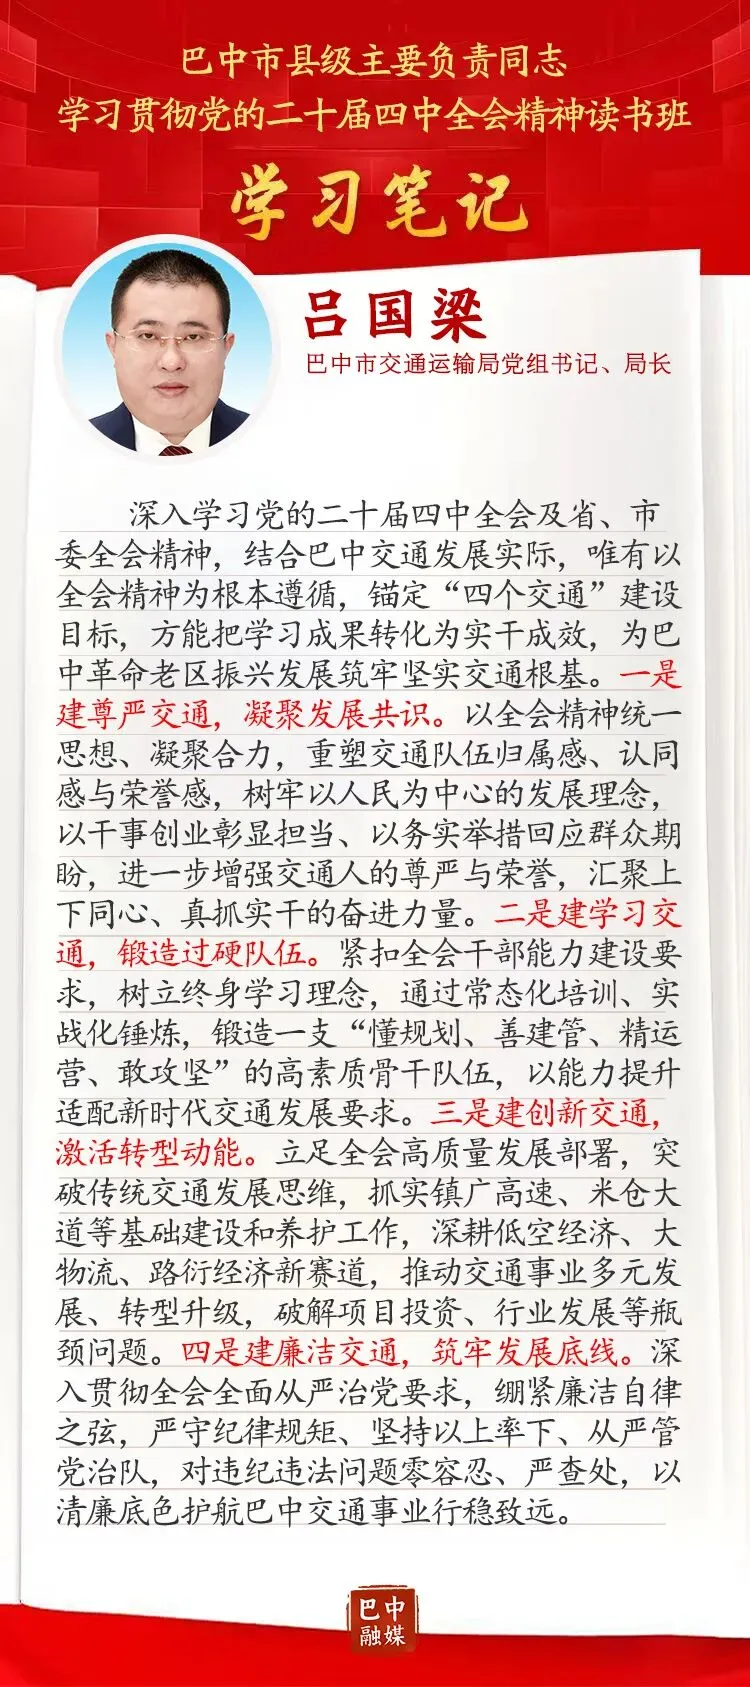 巴中市县级主要负责同志
学习贯彻党的二十届四中全会精神读书班
学习笔记
吕国梁
巴中市交通运输局党组书记、局长
深入学习党的二十届四中全会及省、市
委全会精神，结合巴中交通发展实际，唯有以
全会精神为根本遵循，锚定“四个交通”建设
目标，方能把学习成果转化为实干成效，为巴
中革命老区振兴发展筑牢坚实交通根基。一是
建尊严交通，凝聚发展共识。以全会精神统一
思想、凝聚合力，重塑交通队伍归属感、认同
感与荣誉感，树牢以人民为中心的发展理念，
以干事创业彰显担当、以务实举措回应群众期
盼，进一步增强交通人的尊严与荣誉，汇聚上
下同心、真抓实干的奋进力量。二是建学习交
通，锻造过硬队伍。紧扣全会干部能力建设要
求，树立终身学习理念，通过常态化培训、实
战化锤炼，锻造一支“懂规划、善建管、精运
营、敢攻坚”的高素质骨干队伍，以能力提升
适配新时代交通发展要求。三是建创新交通，
激活转型动能。立足全会高质量发展部署，突
破传统交通发展思维，抓实镇广高速、米仓大
道等基础建设和养护工作，深耕低空经济、大
物流、路衍经济新赛道，推动交通事业多元发
展、转型升级，破解项目投资、行业发展等瓶
颈问题。四是建廉洁交通，筑牢发展底线。深
入贯彻全会全面从严治党要求，绷紧廉洁自律
之弦，严守纪律规矩、坚持以上率下、从严管
党治队，对违纪违法问题零容忍、严查处，以
清廉底色护航巴中交通事业行稳致远。
巴中
融媒